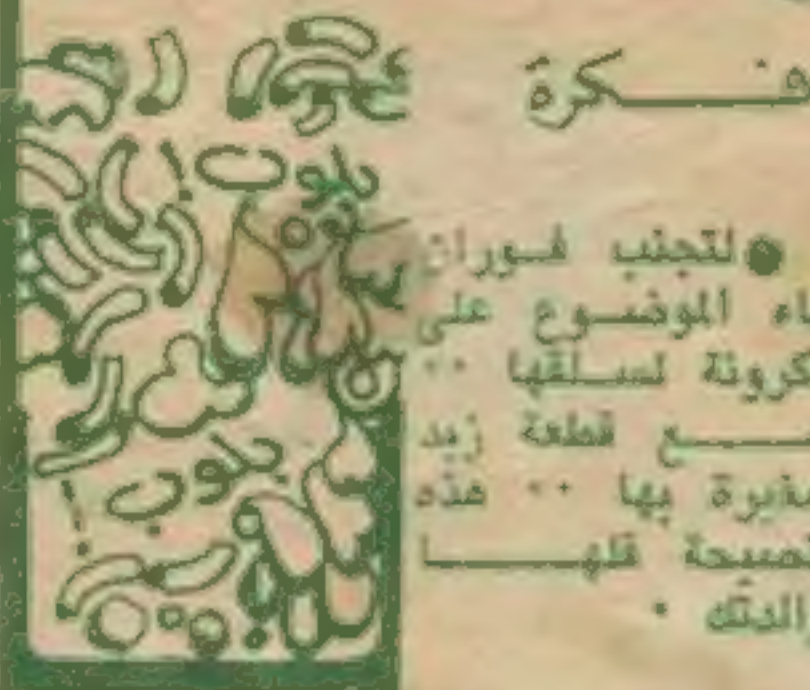 فكرة
● لتجنب فوران
ـاء الموضوع على
ـكرونة لسلقها ··
ـع قطعة زبد
ـغيرة بها ·· هذه
ـنصيحة قلها
ـوالدتك ·
بلوب!
بلوب!